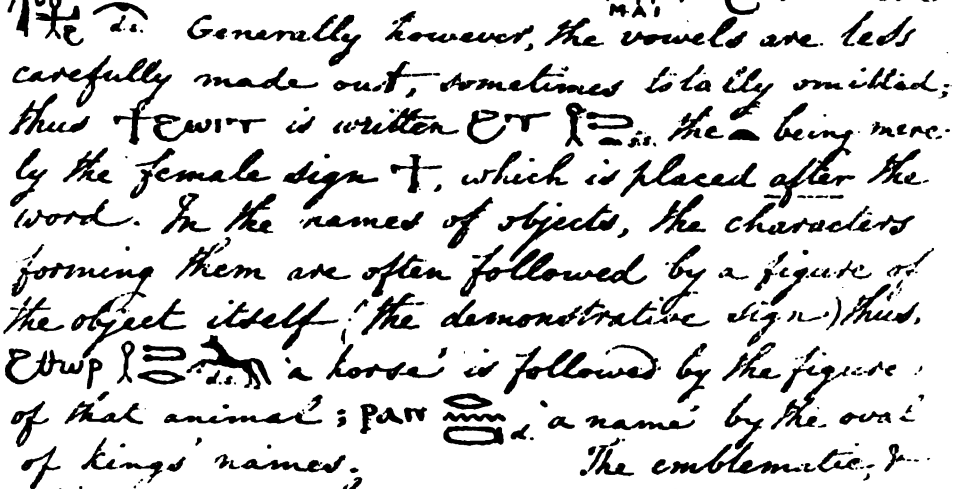 d.s. Generally however, the vowels are less MAI
carefully made out, sometimes totally omitted;
thus is written the being mere-
ly the female sign ϯ, which is placed after the
word. In the names of objects, the characters
forming them are often followed by a figure of
the object itself (the demonstrative sign) thus,
d.s. 'a horse' is followed by the figure
of that animal; ⲣⲁⲛ d. 'a name' by the oval
of kings' names. The emblematic, &